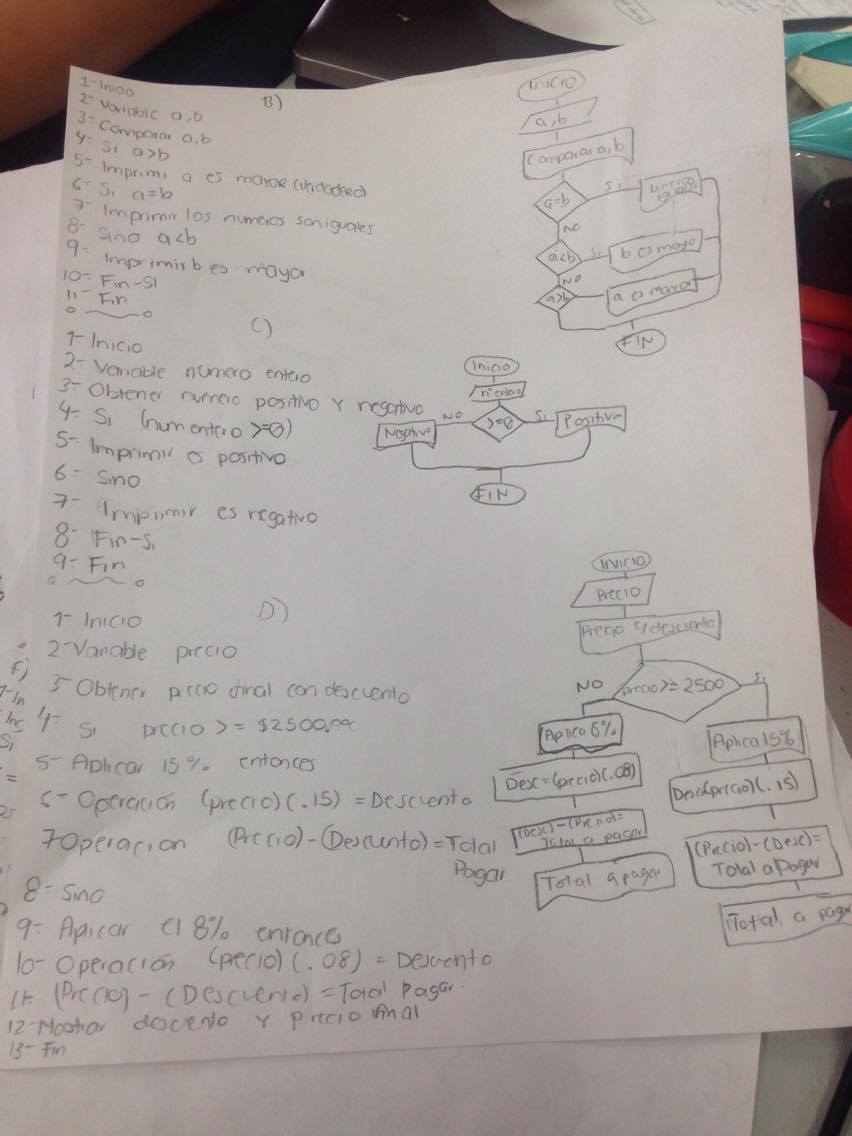 B)
1- Inicio
2- Variable a,b
3- Comparar a,b
4- Si a>b
5- Imprimi a es mayor (verdadero)
6- Si a=b
7- Imprimir los numeros son iguales
8- Sino a<b
9- Imprimir b es mayor
10- Fin-Si
11- Fin
INICIO
a,b
Comparar a,b
a=b
Si
NO
a<b
Si
b es mayo
NO
a>b
a es mayor
FIN
C)
1- Inicio
2- Variable numero entero
3- Obtener numero positivo y negativo
4- Si (num entero >=0)
5- Imprimir es positivo
6- Sino
7- Imprimir es negativo
8- Fin-Si
9- Fin
Inicio
n° entero
NO
>=0
Si
Negativo
Positivo
FIN
D)
1- Inicio
2- Variable precio
3- Obtener precio final con descuento
4- Si precio >= $2500.00
5- Aplicar 15% entonces
6- Operación (precio)(.15) = Descuento
7 Operacion (Precio)-(Descuento)=Total
Pagar
8- Sino
9- Apicar el 8% entonces
10- Operación (precio)(.08) = Descuento
11- (Precio) - (Descuento) = Total Pagar
12- Mostrar descento y precio final
13- Fin
INICIO
Precio
Precio c/descuento
NO
precio>=2500
Si
Aplico 8%
Desc=(precio)(.08)
(Desc)-(Precio)=
Total a pagar
Total a pagar
Aplica 15%
Desc(precio)(.15)
(Precio)-(Desc)=
Total a Pagar
Total a pagar
F)
1-In
Si